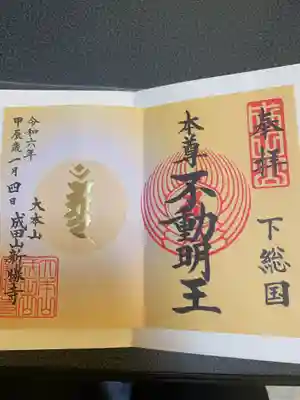 奉拝
下総国
本尊
不動明王
大本山
成田山新勝寺
令和六年
甲辰歳一月四日